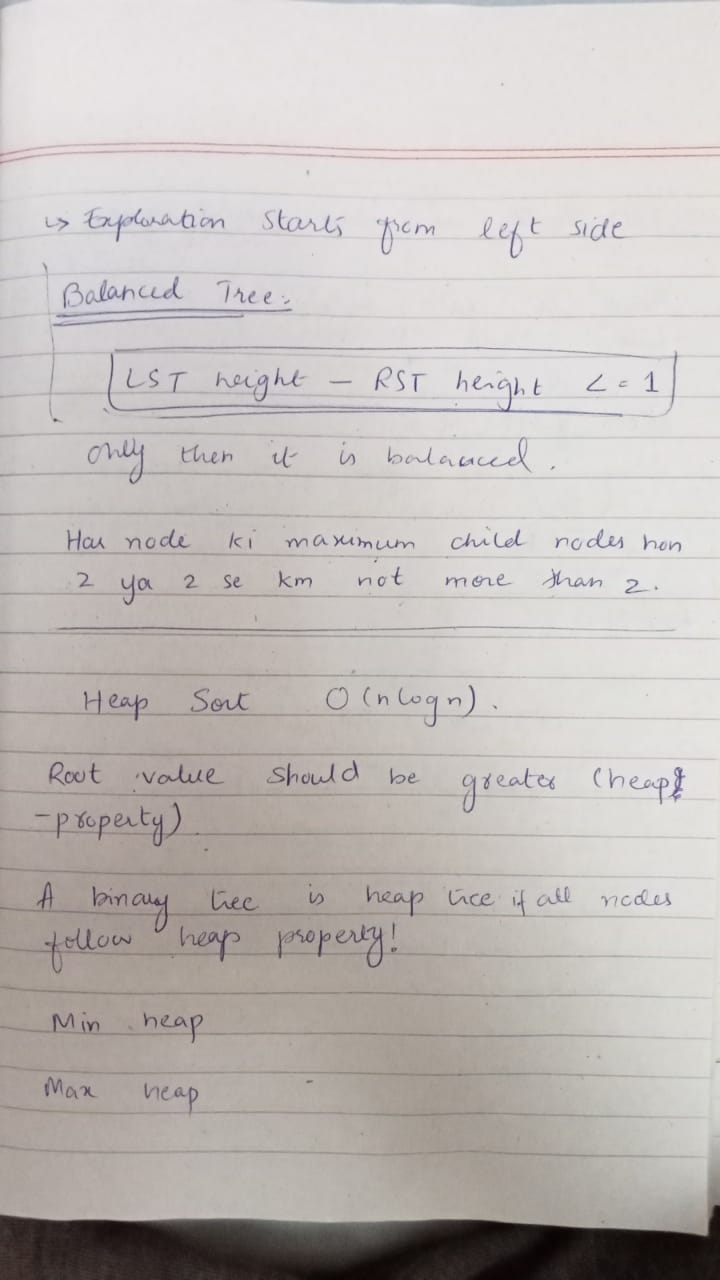 ↳ Exploration starts from left side
Balanced Tree:
LST height – RST height <= 1
only then it is balanced.
Har node ki maximum child nodes hon
2 ya 2 se km not more than 2.
Heap Sort O(nlogn).
Root value should be greater (heap
-property)
A binary tree is heap tree if all nodes
follow heap property!
Min heap
Max heap